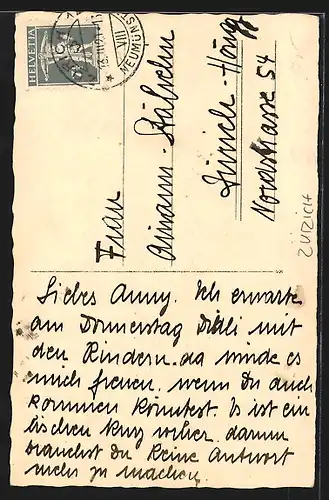 HELVETIA
VIII
NEUMÜNS
Frau
Amann-Stähelin
Zürich-Höngg
Nordstrasse 54
ZÜRICH
Liebes Anny. Ich erwarte
am Donnerstag Dildi mit
den Kindern. da würde es
mich freuen, wenn Du auch
kommen könntest. Es ist ein
bischen kurz vorher, darum
brauchst du keine Antwort
mehr zu machen.